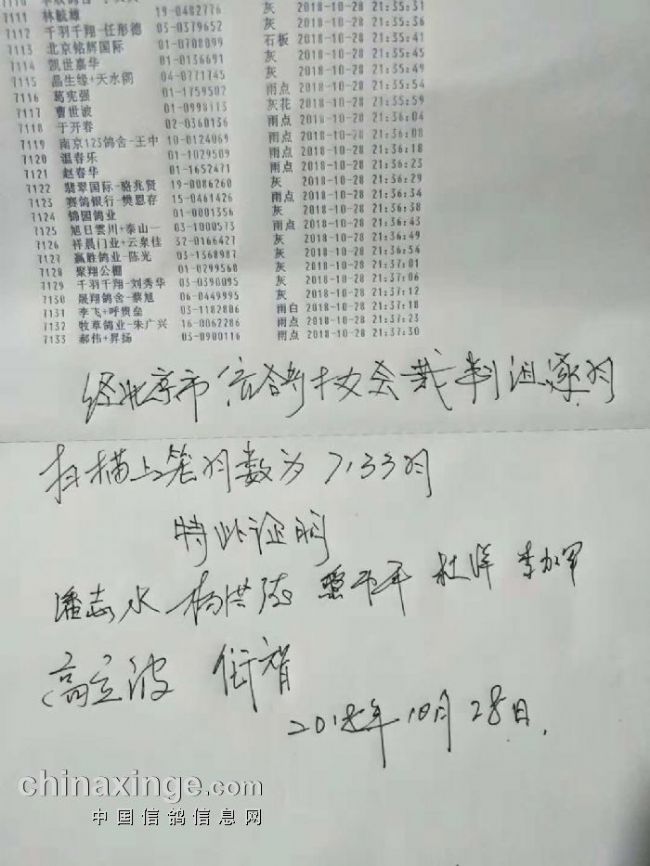 7111 林毓雄 19-0482776 灰 2018-10-28 21:35:31
7112 千羽千翔-任彤德 03-0379652 灰 2018-10-28 21:35:35
7113 北京铭辉国际 01-0708099 石板 2018-10-28 21:35:41
7114 凯世嘉华 01-0136691 灰 2018-10-28 21:35:45
7115 晶生缘+天水彻 04-0771745 灰 2018-10-28 21:35:49
7116 葛宪强 01-1759502 雨点 2018-10-28 21:35:54
7117 曹世波 01-0998113 灰花 2018-10-28 21:35:59
7118 于开春 02-0360136 雨点 2018-10-28 21:36:04
7119 南京123鸽舍-王中 10-0124069 雨点 2018-10-28 21:36:08
7120 温春乐 01-1029509 雨点 2018-10-28 21:36:18
7121 赵春华 01-1652471 雨点 2018-10-28 21:36:23
7122 翡翠国际-骆兆贤 19-0086260 灰 2018-10-28 21:36:29
7123 赛鸽银行-樊恩存 15-0461426 雨点 2018-10-28 21:36:34
7124 锦园鸽业 01-0001356 灰 2018-10-28 21:36:38
7125 旭日雲川+泰山一 03-1000573 雨点 2018-10-28 21:36:43
7126 祥晨门业+云泉佳 32-0166427 灰 2018-10-28 21:36:49
7127 赢胜鸽业-陈光 03-1368987 灰 2018-10-28 21:36:54
7128 聚翔公棚 01-0299568 灰 2018-10-28 21:37:01
7129 千羽千翔-刘秀华 03-0390095 灰 2018-10-28 21:37:06
7130 晟翔鸽舍-蔡旭 06-0449995 灰 2018-10-28 21:37:12
7131 李飞+呼贵皇 03-1182806 雨白 2018-10-28 21:37:18
7132 牧草鸽业-朱广兴 16-0062286 雨点 2018-10-28 21:37:23
7133 郝伟+昇扬 03-0900116 雨点 2018-10-28 21:37:30
经北京市信鸽协会裁判组逐羽
扫描上笼羽数为7133羽
特此证明
潘志水 杨洪 平 杜洋 李加军
高立波 衍智
2018年10月28日.
chinaxinge.com
中国信鸽信息网